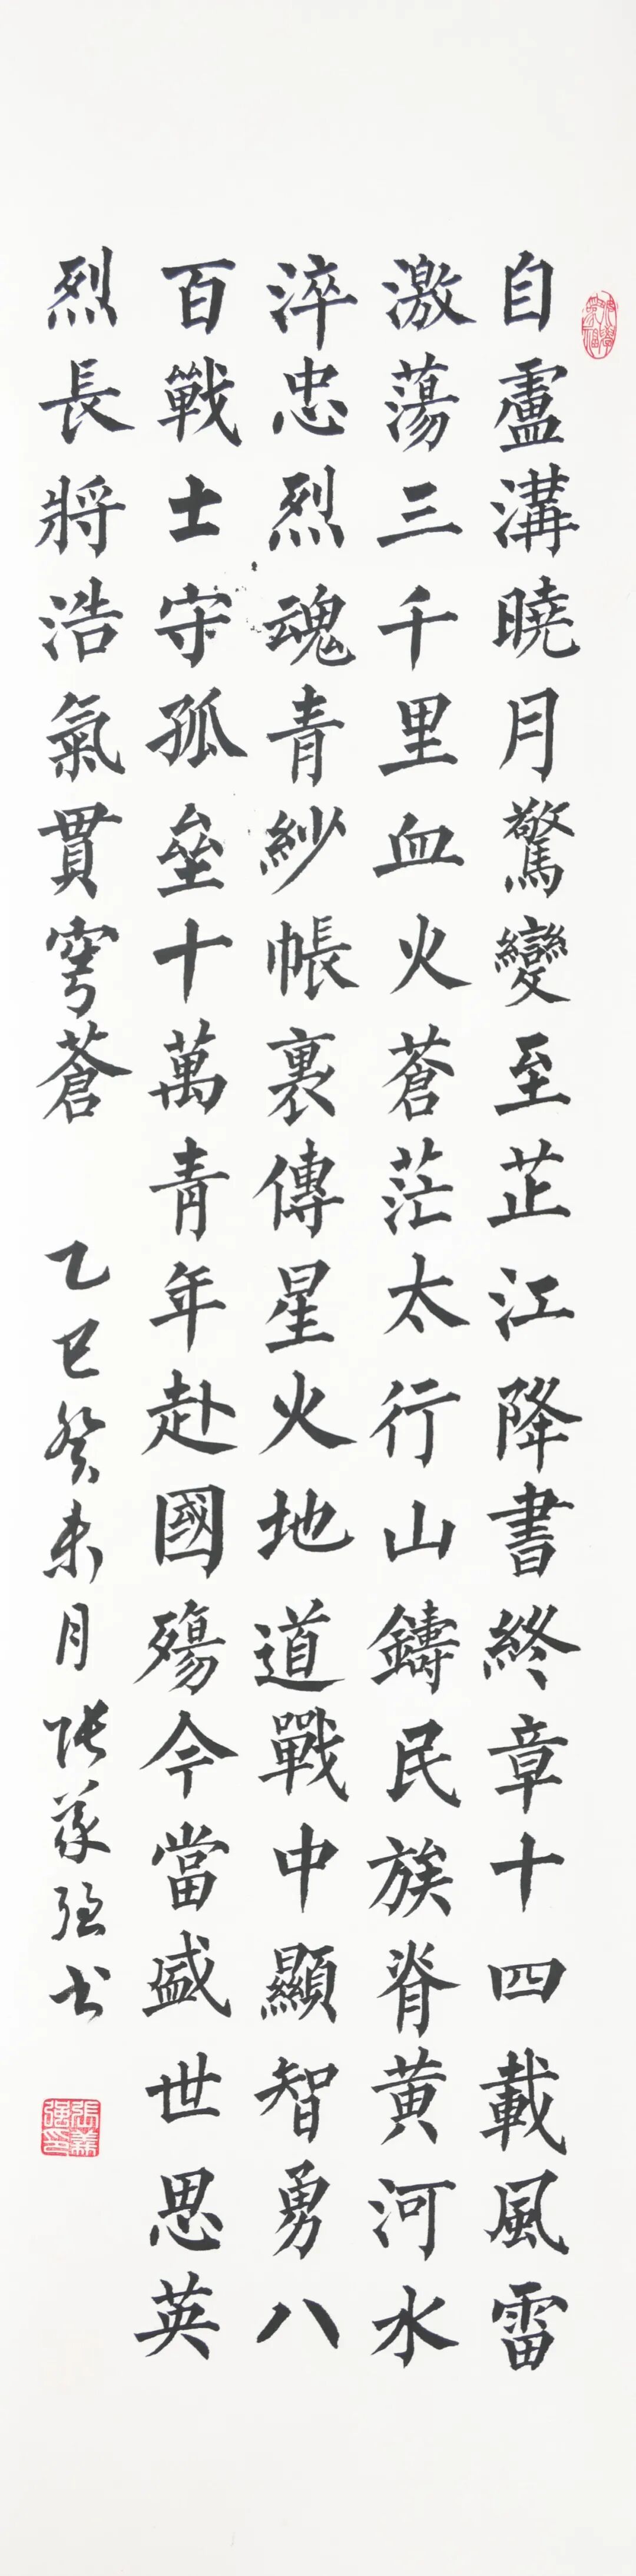 自盧溝曉月驚變至芷江降書終章十四載風雷
激蕩三千里血火蒼茫太行山鑄民族脊黃河水
淬忠烈魂青紗帳裏傳星火地道戰中顯智勇八
百戰士守孤壘十萬青年赴國殤今當盛世思英
烈長將浩氣貫穹蒼
乙巳癸未月張義強书
張義強印